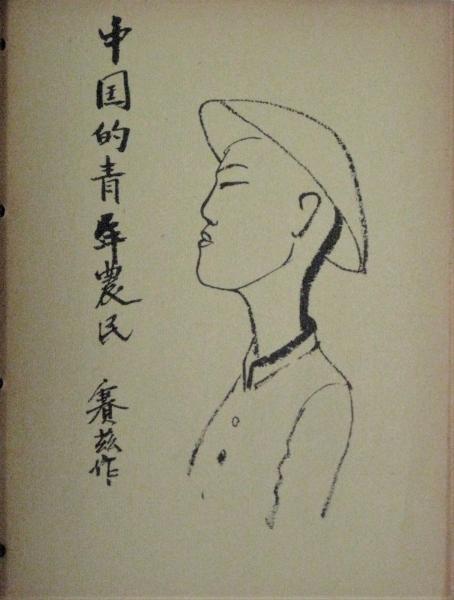 中国的青年農民
賽兹作